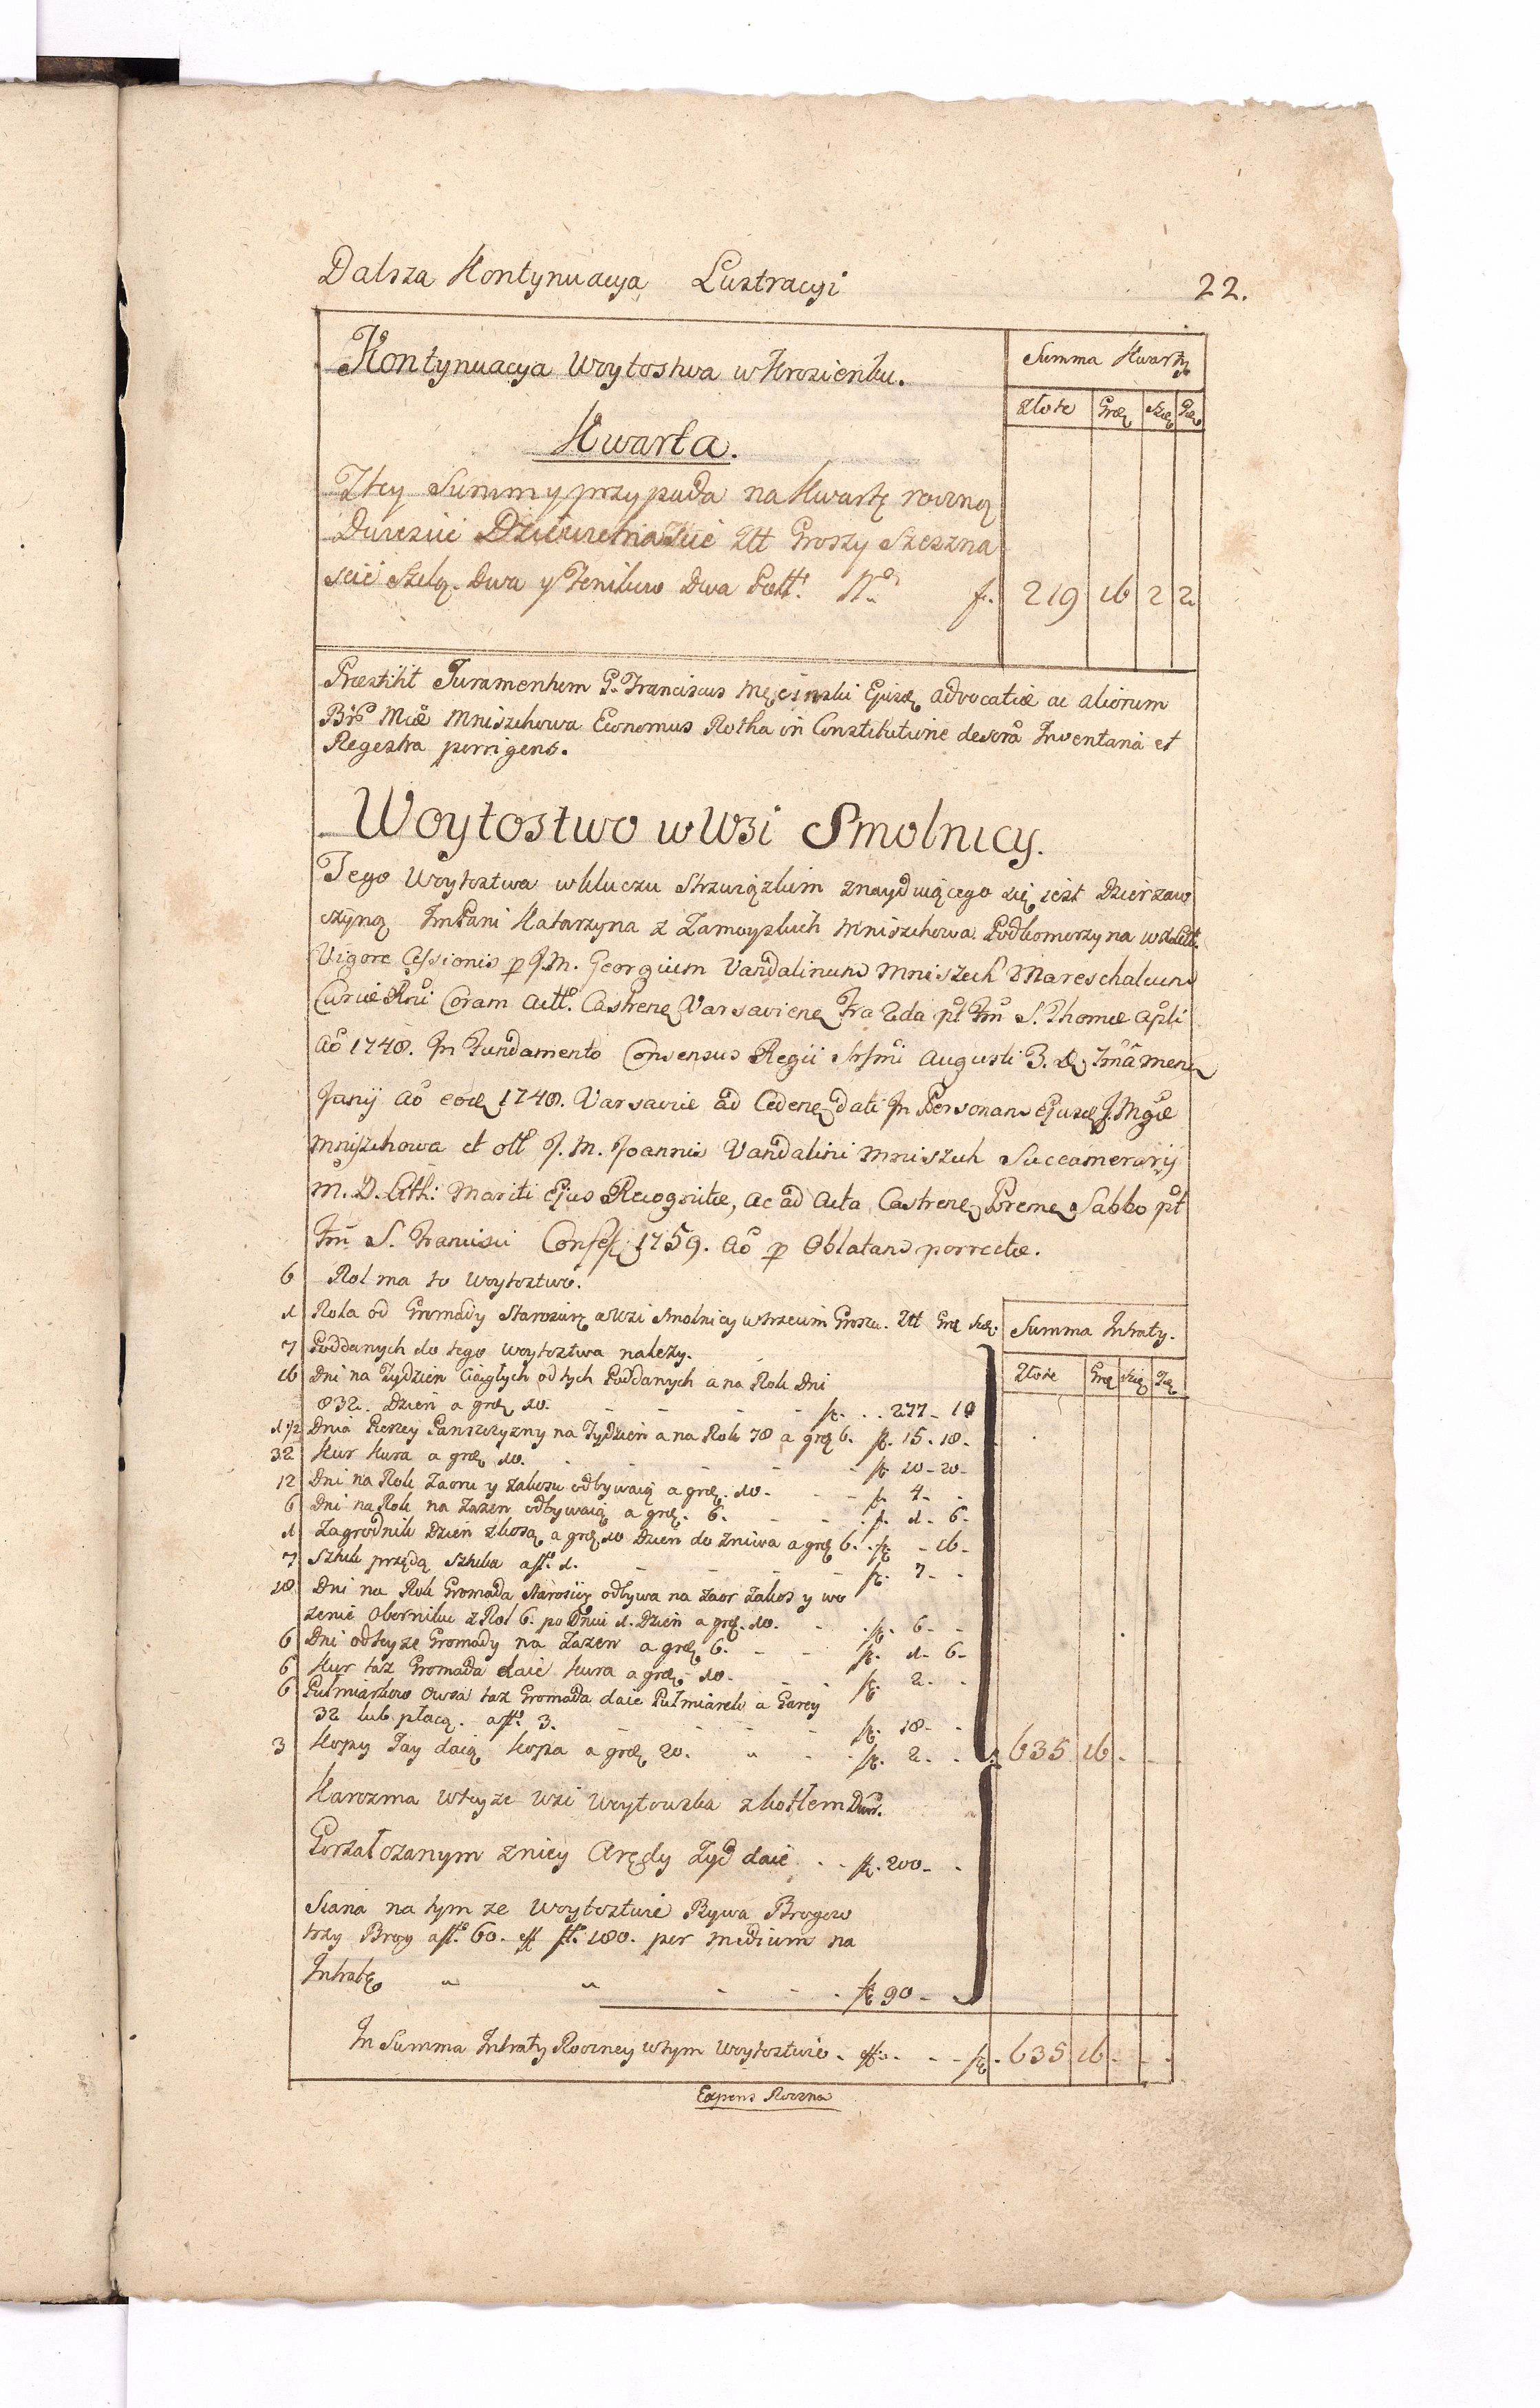 Dalsza Kontynuacya Lustracyi 22.
Kontynuacya Woytostwa w Krosienku.
Summa Kwarty
Złote Grol Szel Pol
Kwarta.
Z tey Summy przypada na Kwartę roczną
Dwiescie Dziewietnascie Złt Groszy Szeszna
scie Szelą. Dwa y Fenikow Dwa f. 219 16 2 2
Præstitit Juramentum G. Franciscus Męcinski Ejusd advocatiæ ac aliorum
Mniszchowa Economus Rotha in Constitutione Inventaria et
Regestra porrigens.
Woytostwo w Wsi Smolnicy.
Tego Woytostwa w kluczu Strzwiązkim znayduiącego się iest Dzierzaw
czyną ImPani Katarzyna z Zamoyskich Mniszchowa Podkomorzyna W X Litt.
Vigore Cessionis p J.M. Georgium Vandalinum Mniszech Mareschalcum
Curiæ Rni Coram Actt. Castren Varsavien Fra 2da pt Fm S. Thomæ Apli
Ao 1748. In Fundamento Consensus Regii Augusti 3. mens
Junij Ao eod 1748. Varsaviæ ad Ceden dati In Personam Ejusd J. Mgæ
Mniszchowa et olt J. M. Joannis Vandalini Mniszch Succamerarij
M. D. Lith: Mariti Ejus Recognitæ, ac ad Acta Castren Prem Sabbo pt
Fm S. Francisci Confess 1759. Ao p Oblatam porrectæ.
6 Rol ma to Woytostwo.
1 Rola od Gromady Starosinę a Wsi Smolnicy w trzecim Groszu. Złt Gro Szel. Summa Intraty.
7 Poddanych do tego Woytostwa należy.
Złote Gro Szel Pol
16 Dni na Tydzien Ciągłych od tych Poddanych a na Rok Dni
832. Dzien a gro 10. f. 277 - 10
1 1/2 Dnia Pieszey Panszczyzny na Tydzień a na Rok 78 a gro 6. f. 15 - 18 -
32 Kur Kura a gro 10. f. 10 - 20 -
12 Dni na Rok Zaoru y zakosu odbywaią a gro. 10 - f. 4 -
6 Dni na Rok na Zazen odbywaią a gro. 6. f. 1 - 6 -
1 Zagrodnik Dzien z kosą a gro 10 Dzień do żniwa a gro 6. f. - 16 -
7 Sztuk przędą Sztuka a f. 1. f. 7 -
18 Dni na Rok Gromada Starosiey odbywa na zaor zakos y wo
zenie Oborniku z Rol 6. po Dniu 1. Dzien a gro. 10. f. 6 -
6 Dni od teyze Gromady na Zazen a gro 6. f. 1 - 6 -
6 Kur taż Gromada daie Kura a gro 10 - f. 2 -
6 Pułmiarkow Owsa taż Gromada daie Pułmiarek a Garcy
32 lub płacą. a f. 3. f. 18 -
3 Kopy Jay daią Kopa a gro 20. f. 2 - 635 16 -
Karczma w teyze Wsi Woytowska z kotłem
Gorzałczanym z niey Arędy Żyd daie f. 200 -
Siana na tym ze Woytostwie Bywa Brogow
trzy Brog a f. 60. eff f. 180. per medium na
Intratę f 90 -
In Summa Intraty Roczney w tym Woytostwie eff. f. 635 16 -
Expens Roczna